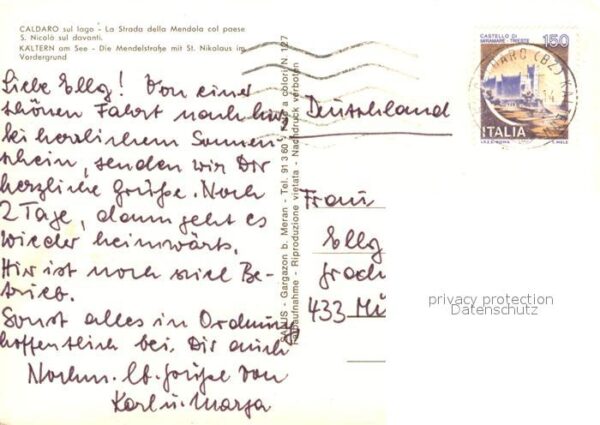 CALDARO sul lago - La Strada della Mendola col paese
S. Nicolò sul davanti.
KALTERN am See - Die Mendelstraße mit St. Nikolaus im
Vordergrund
Liebe Elly! Von einer
schönen Fahrt nach hier
bei herzlichem Sonnen-
schein, senden wir Dir
herzliche Grüße. Noch
2 Tage, dann geht es
wieder heimwärts.
Hier ist noch viel Be-
trieb.
Sonst alles in Ordnung
hoffentlich bei Dir auch
Nochm. lb. Grüße von
Karl u. Marga
- Gargazon b. Meran - Tel. 91360 - a colori N. 127
Riproduzione vietata - Nachdruck verboten
CASTELLO DI
MIRAMARE - TRIESTE
150
ITALIA
(BZ)
Deutschland
Frau
Elly
433 Mü
privacy protection
Datenschutz